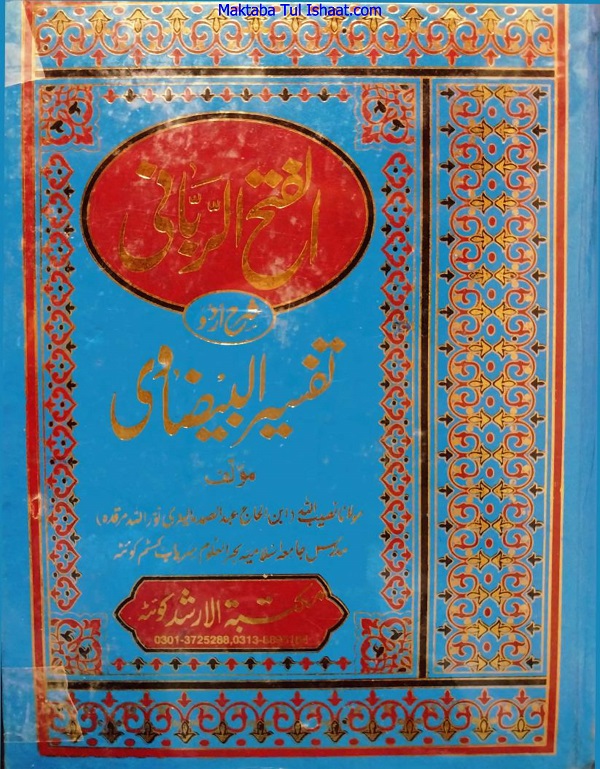 Maktaba Tul Ishaat.com
الفتح الربانی
شرح اردو
تفسیر البیضاوی
مؤلف
مولانا نصیب اللہ (ابن الحاج عبدالصمد نور اللہ مرقدہ)
مدرس جامعہ اسلامیہ بحرالعلوم سریاب کسٹم کوئٹہ
مکتبۃ الارشد کوئٹہ
0301-3725288,